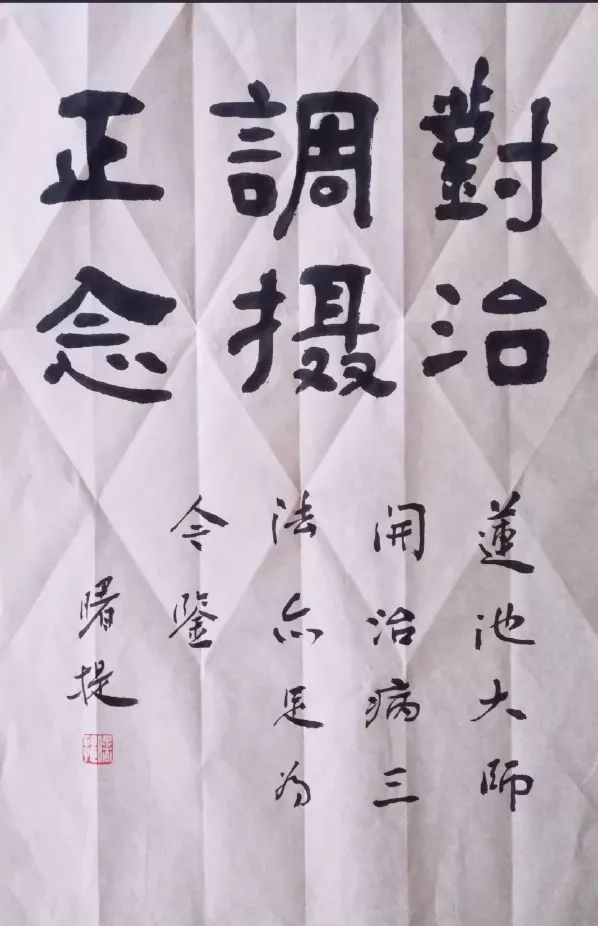 對治
調摄
正念
蓮池大師
開治病三
法亦足为
今鉴
曙提